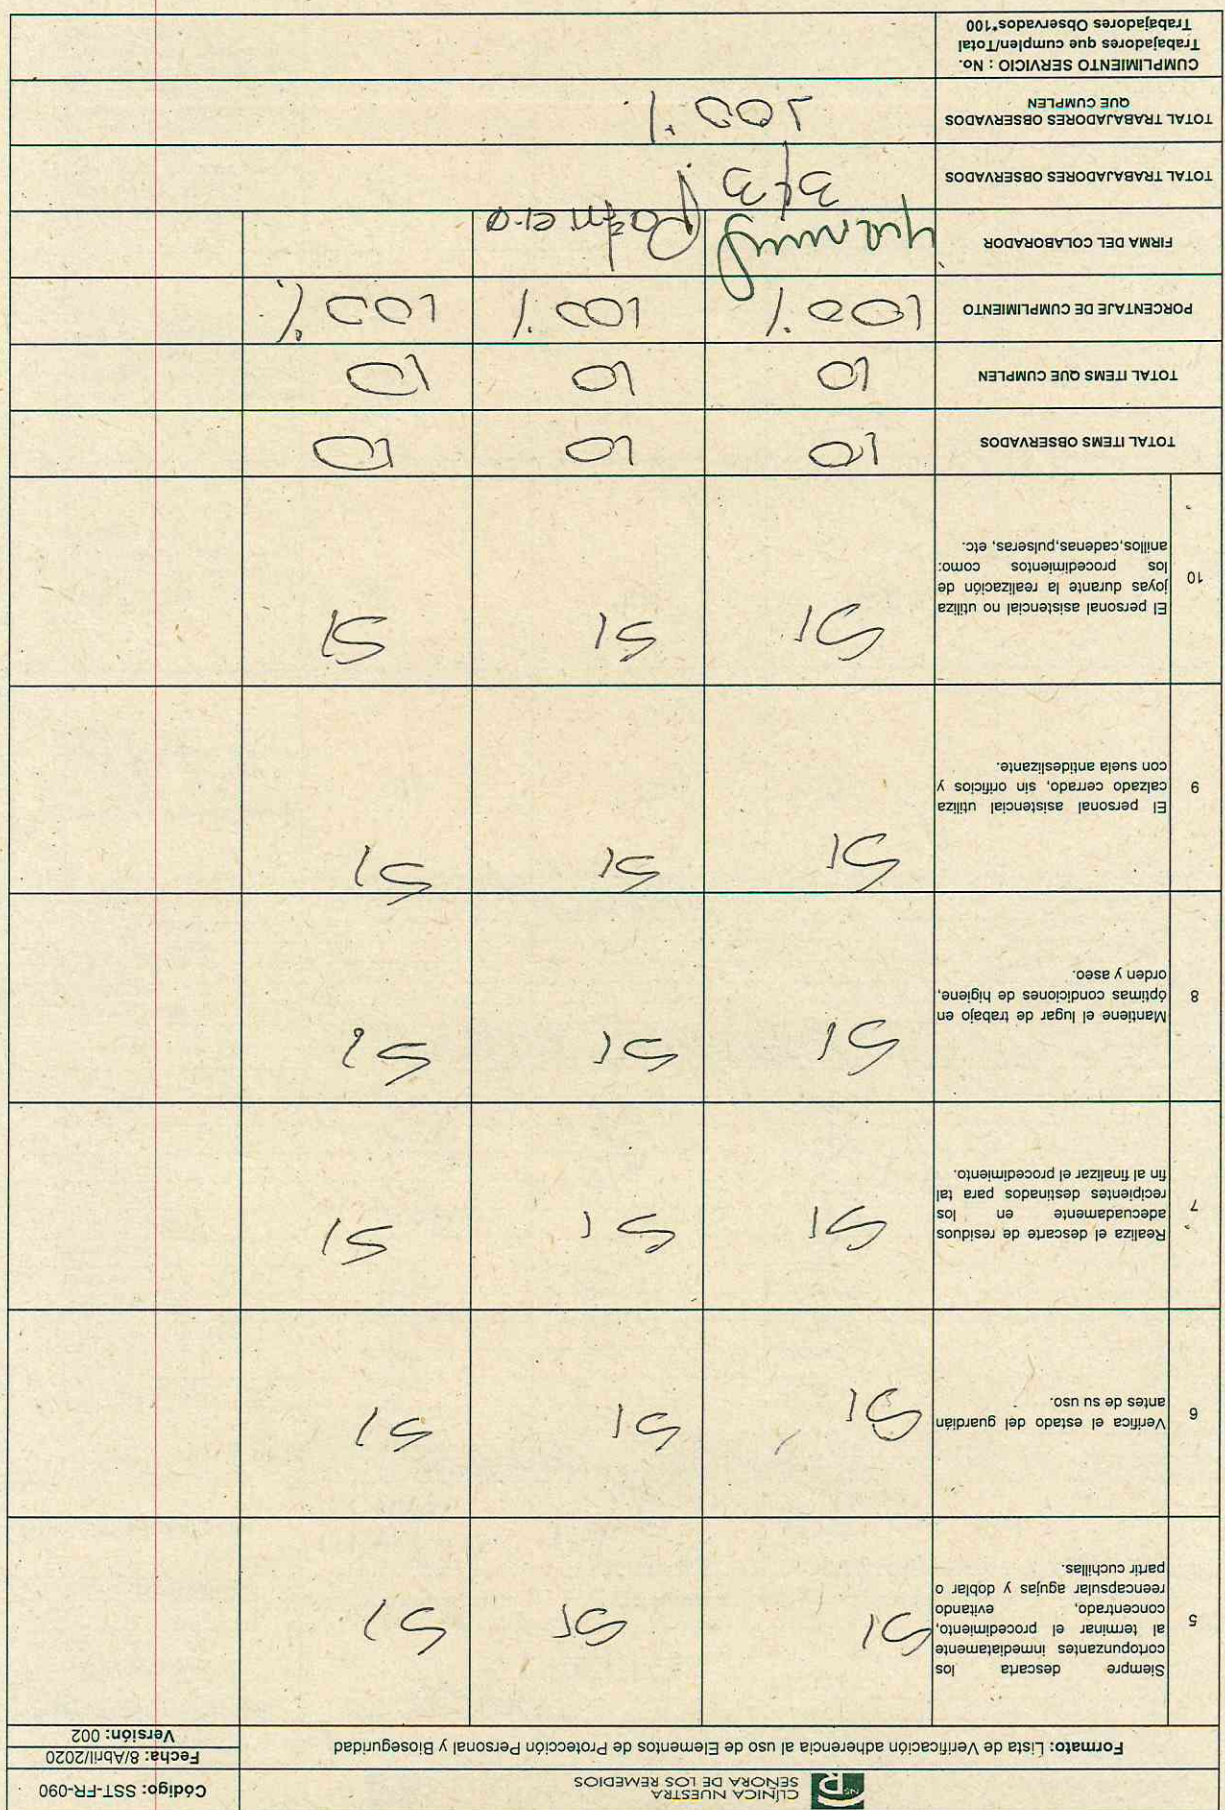 CLÍNICA NUESTRA
SEÑORA DE LOS REMEDIOS
Código: SST-FR-090
Formato: Lista de Verificación adherencia al uso de Elementos de Protección Personal y Bioseguridad
Fecha: 8/Abril/2020
Versión: 002
5
Siempre descarta los
cortopunzantes inmediatamente
al terminar el procedimiento,
concentrado, evitando
reencapsular agujas y doblar o
partir cuchillas.
SI SI SI
6
Verifica el estado del guardián
antes de su uso.
SI SI SI
7
Realiza el descarte de residuos
adecuadamente en los
recipientes destinados para tal
fin al finalizar el procedimiento.
SI SI SI
8
Mantiene el lugar de trabajo en
óptimas condiciones de higiene,
orden y aseo.
SI SI Si
9
El personal asistencial utiliza
calzado cerrado, sin orificios y
con suela antideslizante.
SI SI SI
10
El personal asistencial no utiliza
joyas durante la realización de
los procedimientos como:
anillos,cadenas,pulseras, etc.
SI SI SI
TOTAL ITEMS OBSERVADOS 10 10 10
TOTAL ITEMS QUE CUMPLEN 10 10 10
PORCENTAJE DE CUMPLIMIENTO 100% 100% 100%
FIRMA DEL COLABORADOR
TOTAL TRABAJADORES OBSERVADOS
TOTAL TRABAJADORES OBSERVADOS
QUE CUMPLEN
100%
CUMPLIMIENTO SERVICIO : No.
Trabajadores que cumplen/Total
Trabajadores Observados*100